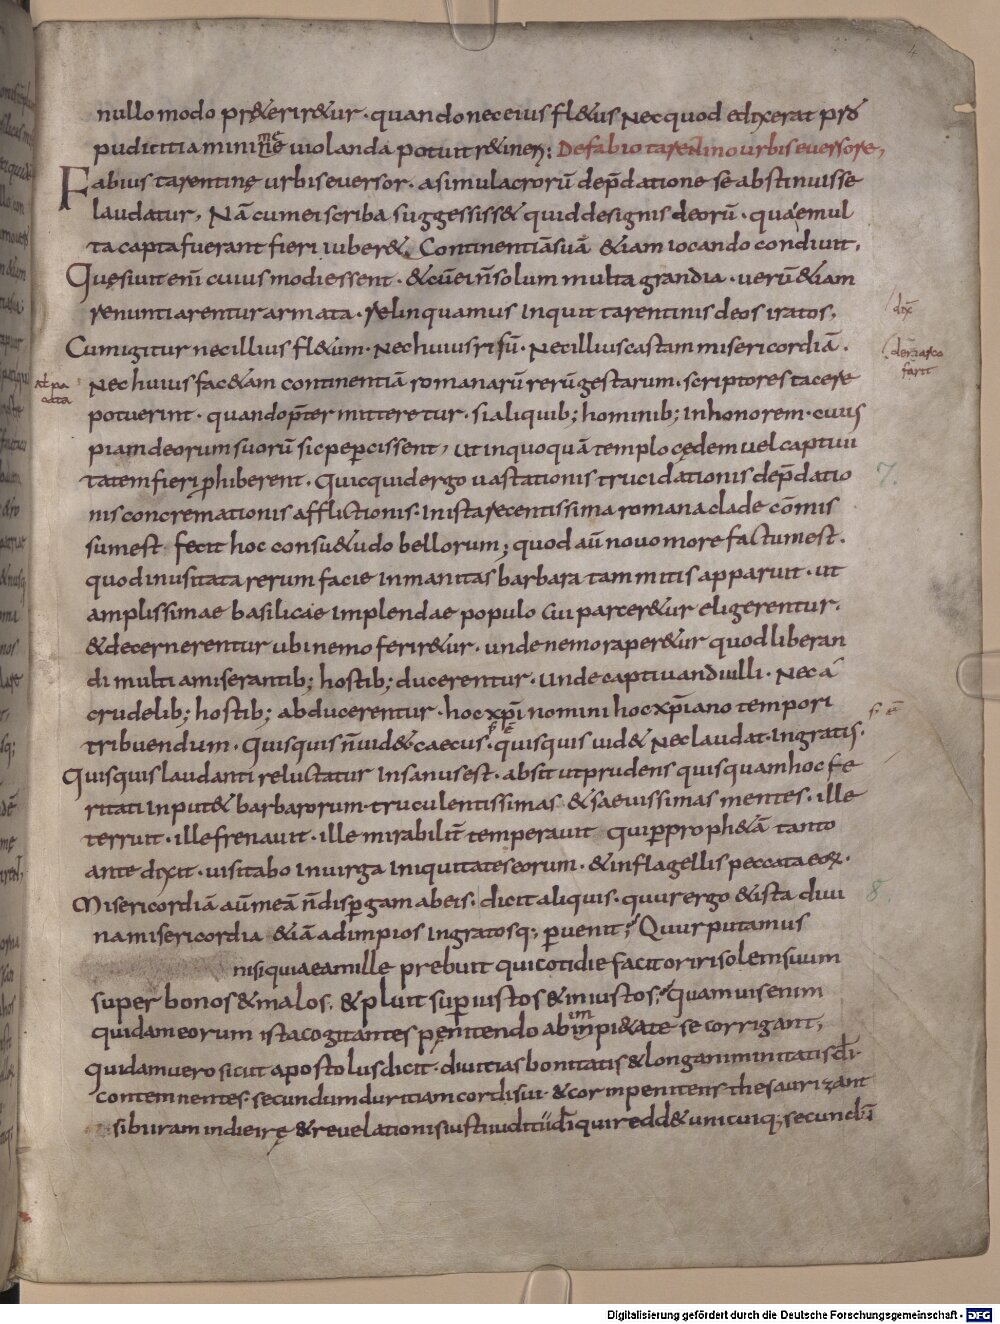 4
nullo modo pr&erir&ur · quando nec eius fl&us Nec quod edixerat pro
pudicitia minime violanda potuit r&ineri: De fabio tarentino urbis eversore,
Fabius tarentinę urbis eversor · a simulacrorū dep̄datione se abstinuisse
laudatur, Nā cum ei scriba suggessiss& quid de signis deorū · quae mul
ta capta fuerant fieri iuber&, Continentiā suā &iam iocando condivit,
Quęsivit enī cuius modi essent · &cū ei n̄ solum multa grandia · verū &iam
renuntiarentur armata · relinquamus inquit tarentinis deos iratos,
Cum igitur nec illius fl&um · Nec huius risū · Nec illius castam misericordiā ·
Nec huius fac&am continentiā romanarū rerū gestarum · scriptores tacere
potuerint · quando p̄termitteretur · si aliquib; hominib; in honorem · cuius
piam deorum suorū sic pepercissent, ut in quoquā templo cędem vel captivi
tatem fieri phiberent. Quicquid ergo vastationis trucidationis dep̄datio
nis concremationis afflictionis · In ista recentissima romana clade cōmis
sum est fecit hoc consu&udo bellorum; quod aū novo more factum est ·
quod inusitata rerum facie inmanitas barbara tam mitis apparuit · ut
amplissimae basilicae implendae populo cui parcer&ur eligerentur ·
& decernerentur ubi nemo ferir&ur · unde nemo raper&ur quo liberan
di multi a miserantib; hostib; ducerentur · Unde captivandi ulli · Nec a
crudelib; hostib; abducerentur · hoc xp̄i nomini hoc xp̄iano tempori
tribuendum · Quisquis n̄ vid& caecus · quisquis vid& Nec laudat · Ingratus ·
Quisquis laudanti reluctatur insanus est · absit ut prudens quisquam hoc fe
ritati input& barbarorum · truculentissimas & saevissimas mentes · ille
terruit · ille frenavit · ille mirabilit̄ temperavit qui p proph&ā tanto
ante dixit · visitabo in virga iniquitates eorum · & in flagellis peccata eoꝝ ·
Misericordiā aū meā n̄ dispgam ab eis · dicit aliquis · quur ergo & ista divi
na misericordia &iā ad impios ingratosq; pvenit; Quur putamus
nisi quia eam ille prebuit qui cotidie facit oriri solem suum
super bonos & malos, & pluit sup iustos & iniustos; Quamvis enim
quidam eorum ista cogitantes pęnitendo ab impi&ate se corrigant,
quidam vero sicut apostolus dicit · divitias bonitatis & longanimitatis dī ·
contemnentes · secundum duritiam cordis sui · & cor inpenitens thesaurizant
sibi iram in die irę & revelationis iusti iuditii dī qui redd& unicuiq; secundū
dix
7.
8.
Digitalisierung gefördert durch die Deutsche Forschungsgemeinschaft · DFG